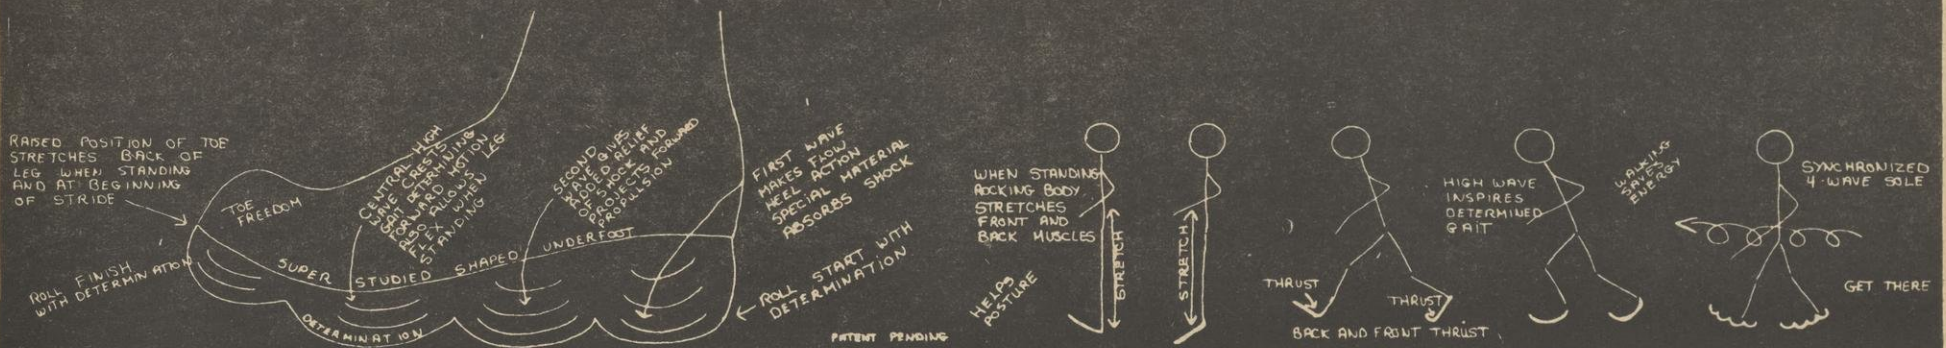 RAISED POSITION OF TOE
STRETCHES BACK OF
LEG WHEN STANDING
AND AT BEGINNING
OF STRIDE
TOE
FREEDOM
ROLL FINISH
WITH DETERMINATION
CENTRAL HIGH
WAVE CRESTS
GAIT DETERMINING
FORWARD MOTION
ALSO ALLOWS LEG
FLEX WHEN
STANDING
SECOND
WAVE GIVES
ADDED RELIEF
OF SHOCK AND
PROJECTS FORWARD
PROPULSION
FIRST WAVE
MAKES FLOW
HEEL ACTION
SPECIAL MATERIAL
ABSORBS SHOCK
SUPER STUDIED SHAPED UNDERFOOT
DETERMINATION
ROLL START WITH
DETERMINATION
PATENT PENDING
WHEN STANDING
ROCKING BODY
STRETCHES
FRONT AND
BACK MUSCLES
HELPS
POSTURE
STRETCH
STRETCH
THRUST
THRUST
BACK AND FRONT THRUST
HIGH WAVE
INSPIRES
DETERMINED
GAIT
WALKING
SAVES
ENERGY
SYNCHRONIZED
4-WAVE SOLE
GET THERE